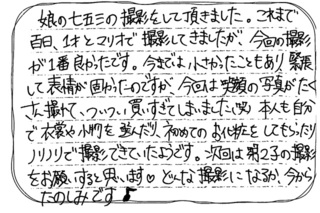 娘の七五三の撮影をして頂きました。これまで
百日、1才とマリオで撮影してきましたが、今回の撮影
が1番良かったです。今までは小さかったこともあり、緊張
して表情が固かったのですが、今回は笑顔の写真がたく
さん撮れて、ついつい買いすぎてしまいました(笑) 本人も自分
で衣裳や小物を選んだり、初めてのお化粧をしてもらったり
ノリノリで撮影できていたようです。次回は第2子の撮影
をお願いすると思います♡どんな撮影になるか、今から
たのしみです♪